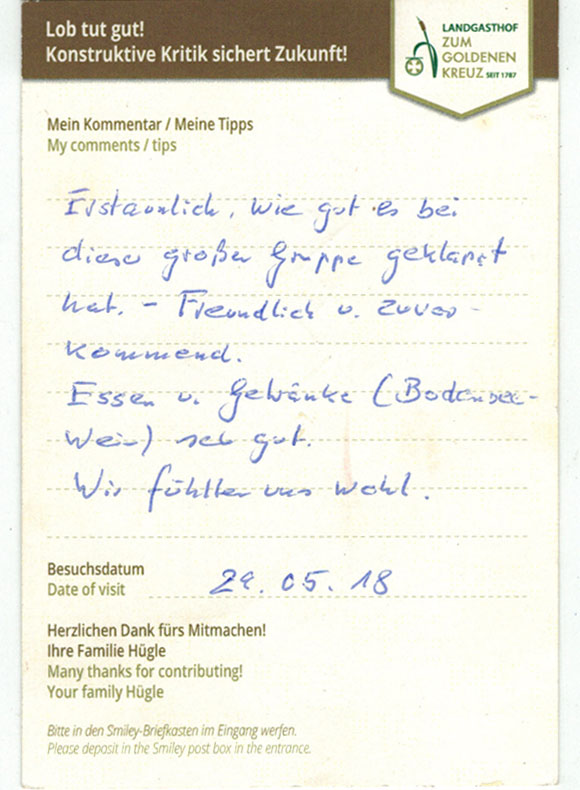 Lob tut gut!
Konstruktive Kritik sichert Zukunft!
LANDGASTHOF
ZUM
GOLDENEN
KREUZ SEIT 1787
Mein Kommentar / Meine Tipps
My comments / tips
Erstaunlich, wie gut es bei
dieser großen Gruppe geklappt
hat. - Freundlich u. zuvor-
kommend.
Essen u. Getränke (Bodensee-
Wein) sehr gut.
Wir fühlten uns wohl.
Besuchsdatum
Date of visit
29.05.18
Herzlichen Dank fürs Mitmachen!
Ihre Familie Hügle
Many thanks for contributing!
Your family Hügle
Bitte in den Smiley-Briefkasten im Eingang werfen.
Please deposit in the Smiley post box in the entrance.